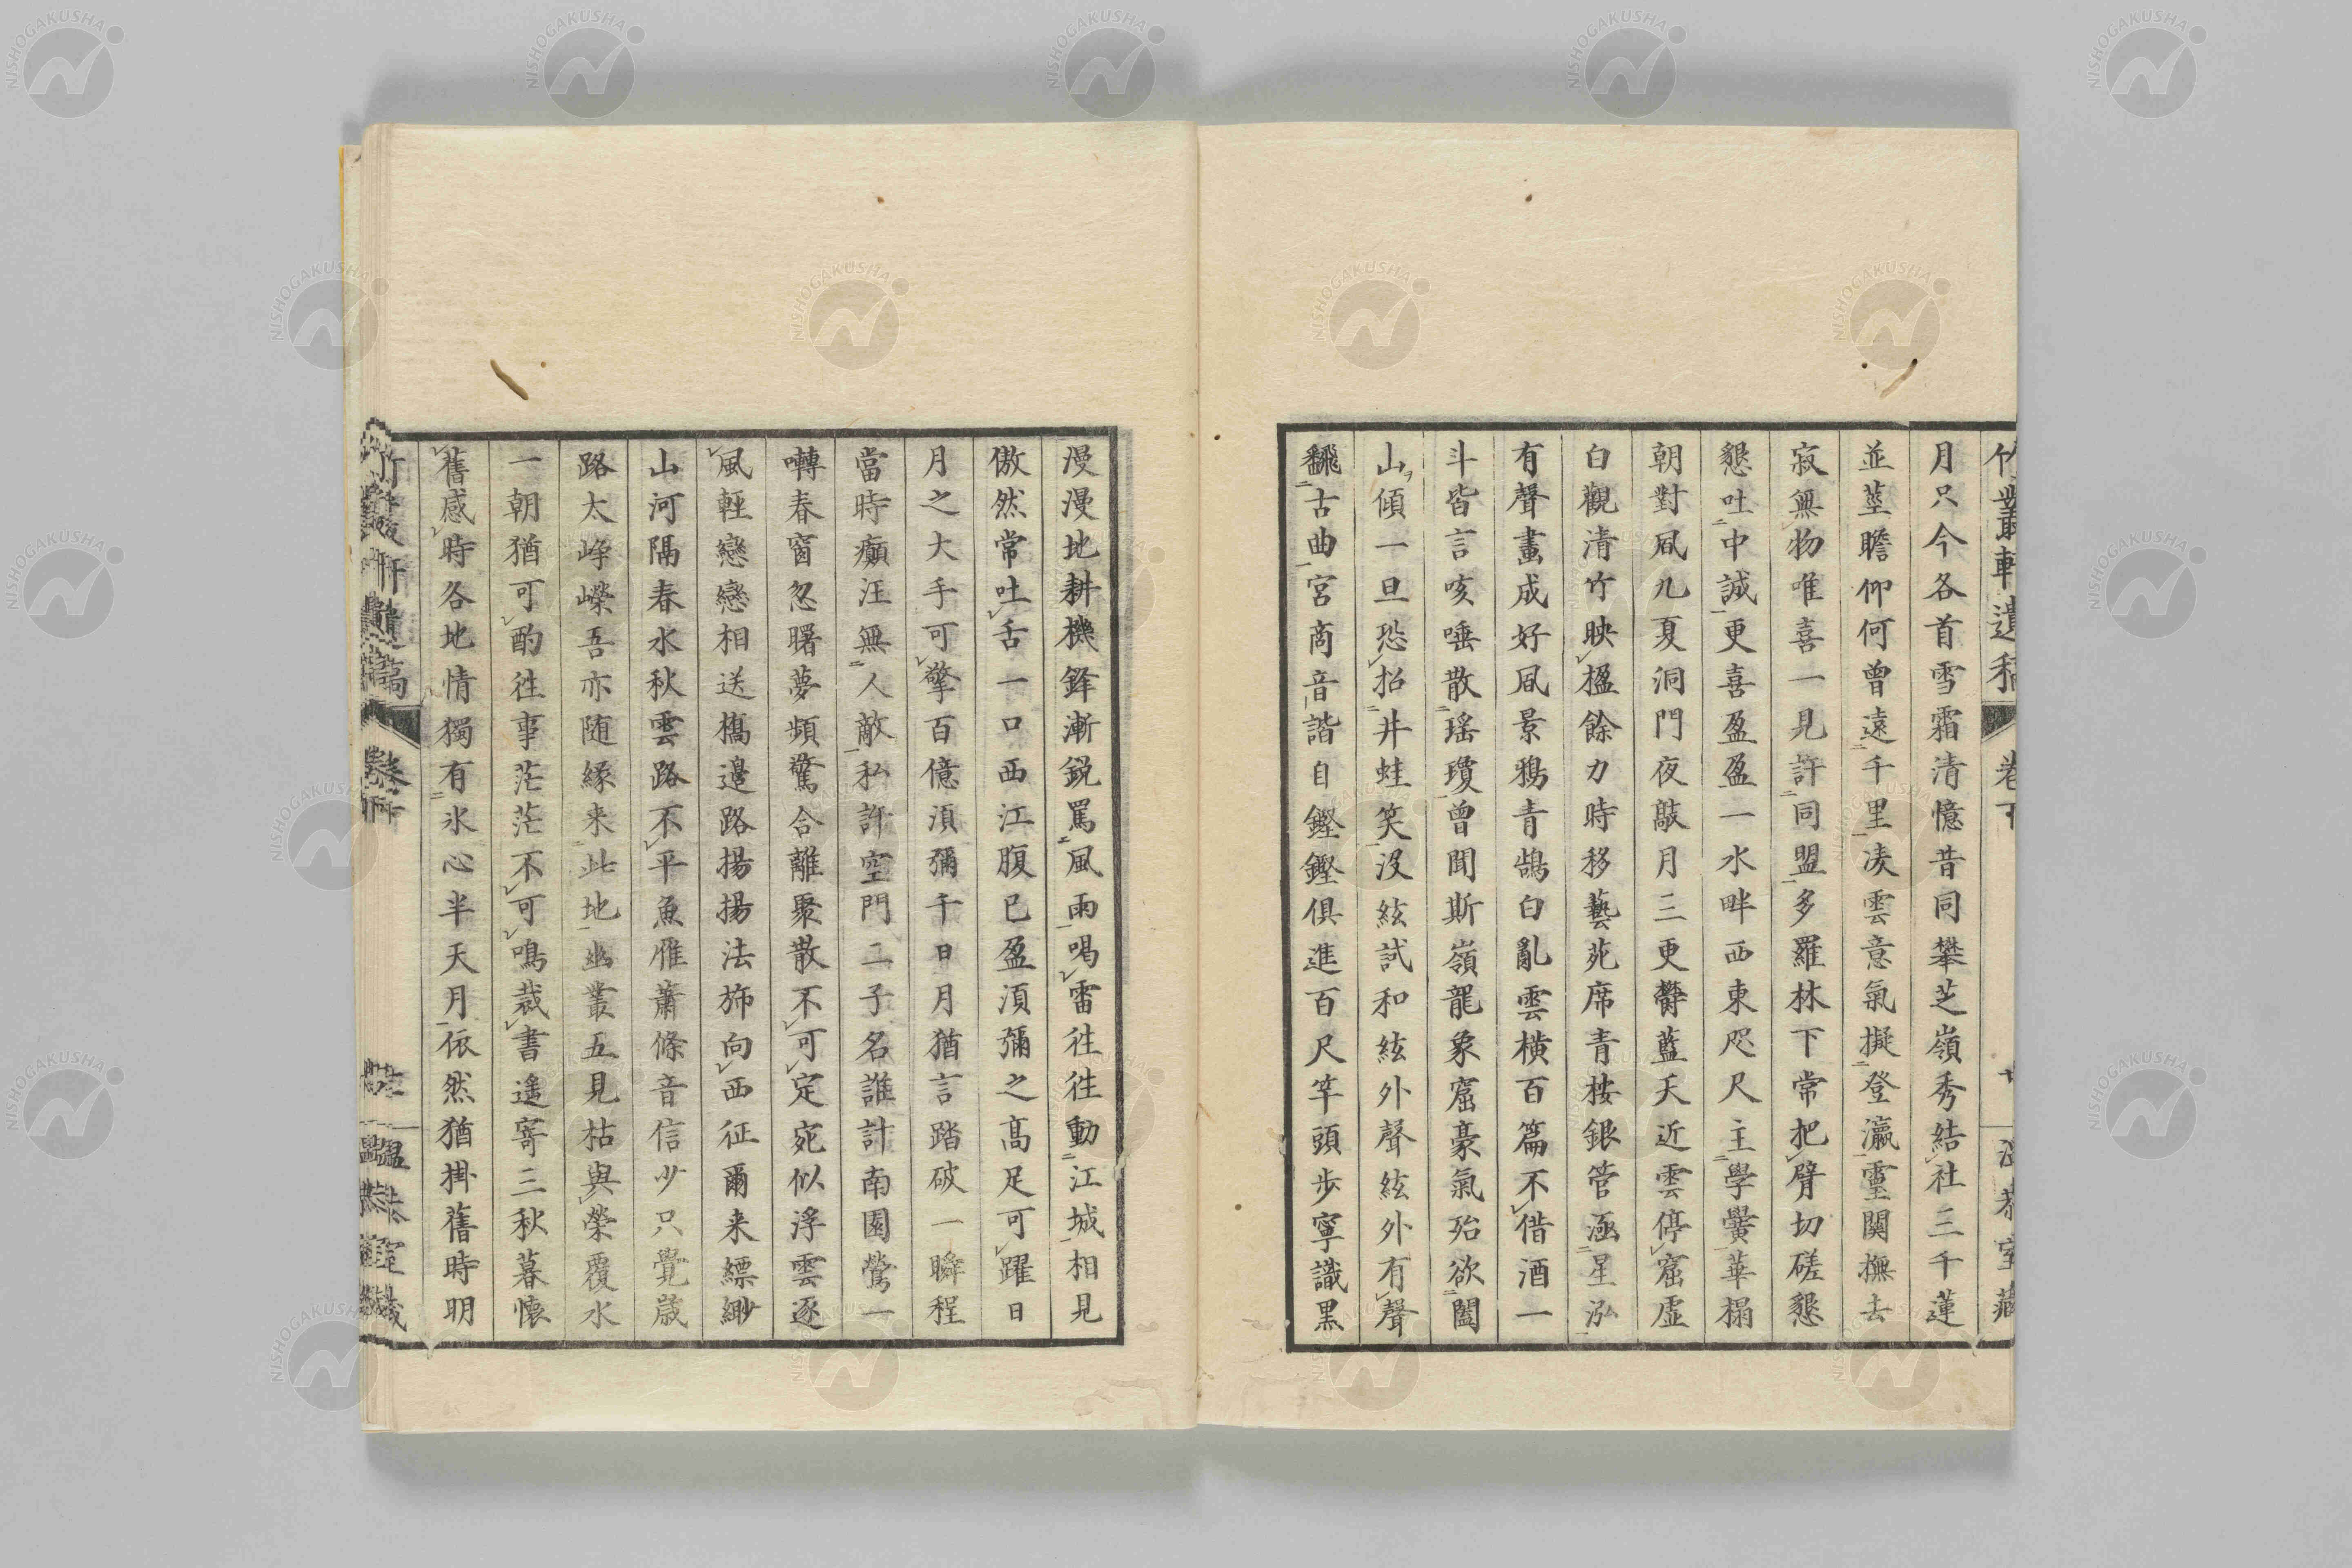 竹叢軒遺稿 卷下
月只今各首雪霜清憶昔同攀芝嶺秀結社三千蓮
並莖瞻仰何曾遠千里凌雲意氣擬登瀛靈関撫去
寂無物唯喜一見許同盟多羅林下常把臂切磋懇
懇吐中誠更喜盈盈一水畔西東咫尺主學黌華榻
朝對凮九夏洞門夜敲月三更欝藍天近雲停窟虛
白觀清竹映楹餘力時移藝苑席青桉銀管涵星泓
有聲畫成好凮景鴉青鵠白亂雲橫百篇不借酒一
斗皆言咳唾散瑤瓊曾聞斯嶺龍象窟豪氣殆欲闔
山傾一旦恐招井蛙笑没絃試和絃外聲絃外有聲
飜古曲宮商音諧自鏗鏗俱進百尺竿頭步寧識黑
漫漫地耕機鋒漸銳罵風雨喝雷往往動江城相見
傲然常吐舌一口西江腹已盈湏彌之高足可躍日
月之大手可擎百億湏彌千日月猶言踏破一瞬程
當時癲汪無人敵私許空門二子名誰計南園鶯一
囀春窗忽曙夢頻驚合離聚散不可定宛似浮雲逐
風輕戀戀相送橋邊路揚揚法斾向西征爾来縹緲
山河隔春水秋雲路不平魚雁蕭條音信少只覺歲
路太崢嶸吾亦随緣来此地幽叢五見枯與榮覆水
一朝猶可酌往事茫茫不可鳴裁書遥寄三秋暮懷
舊感時各地情獨有氷心半天月依然猶掛舊時明